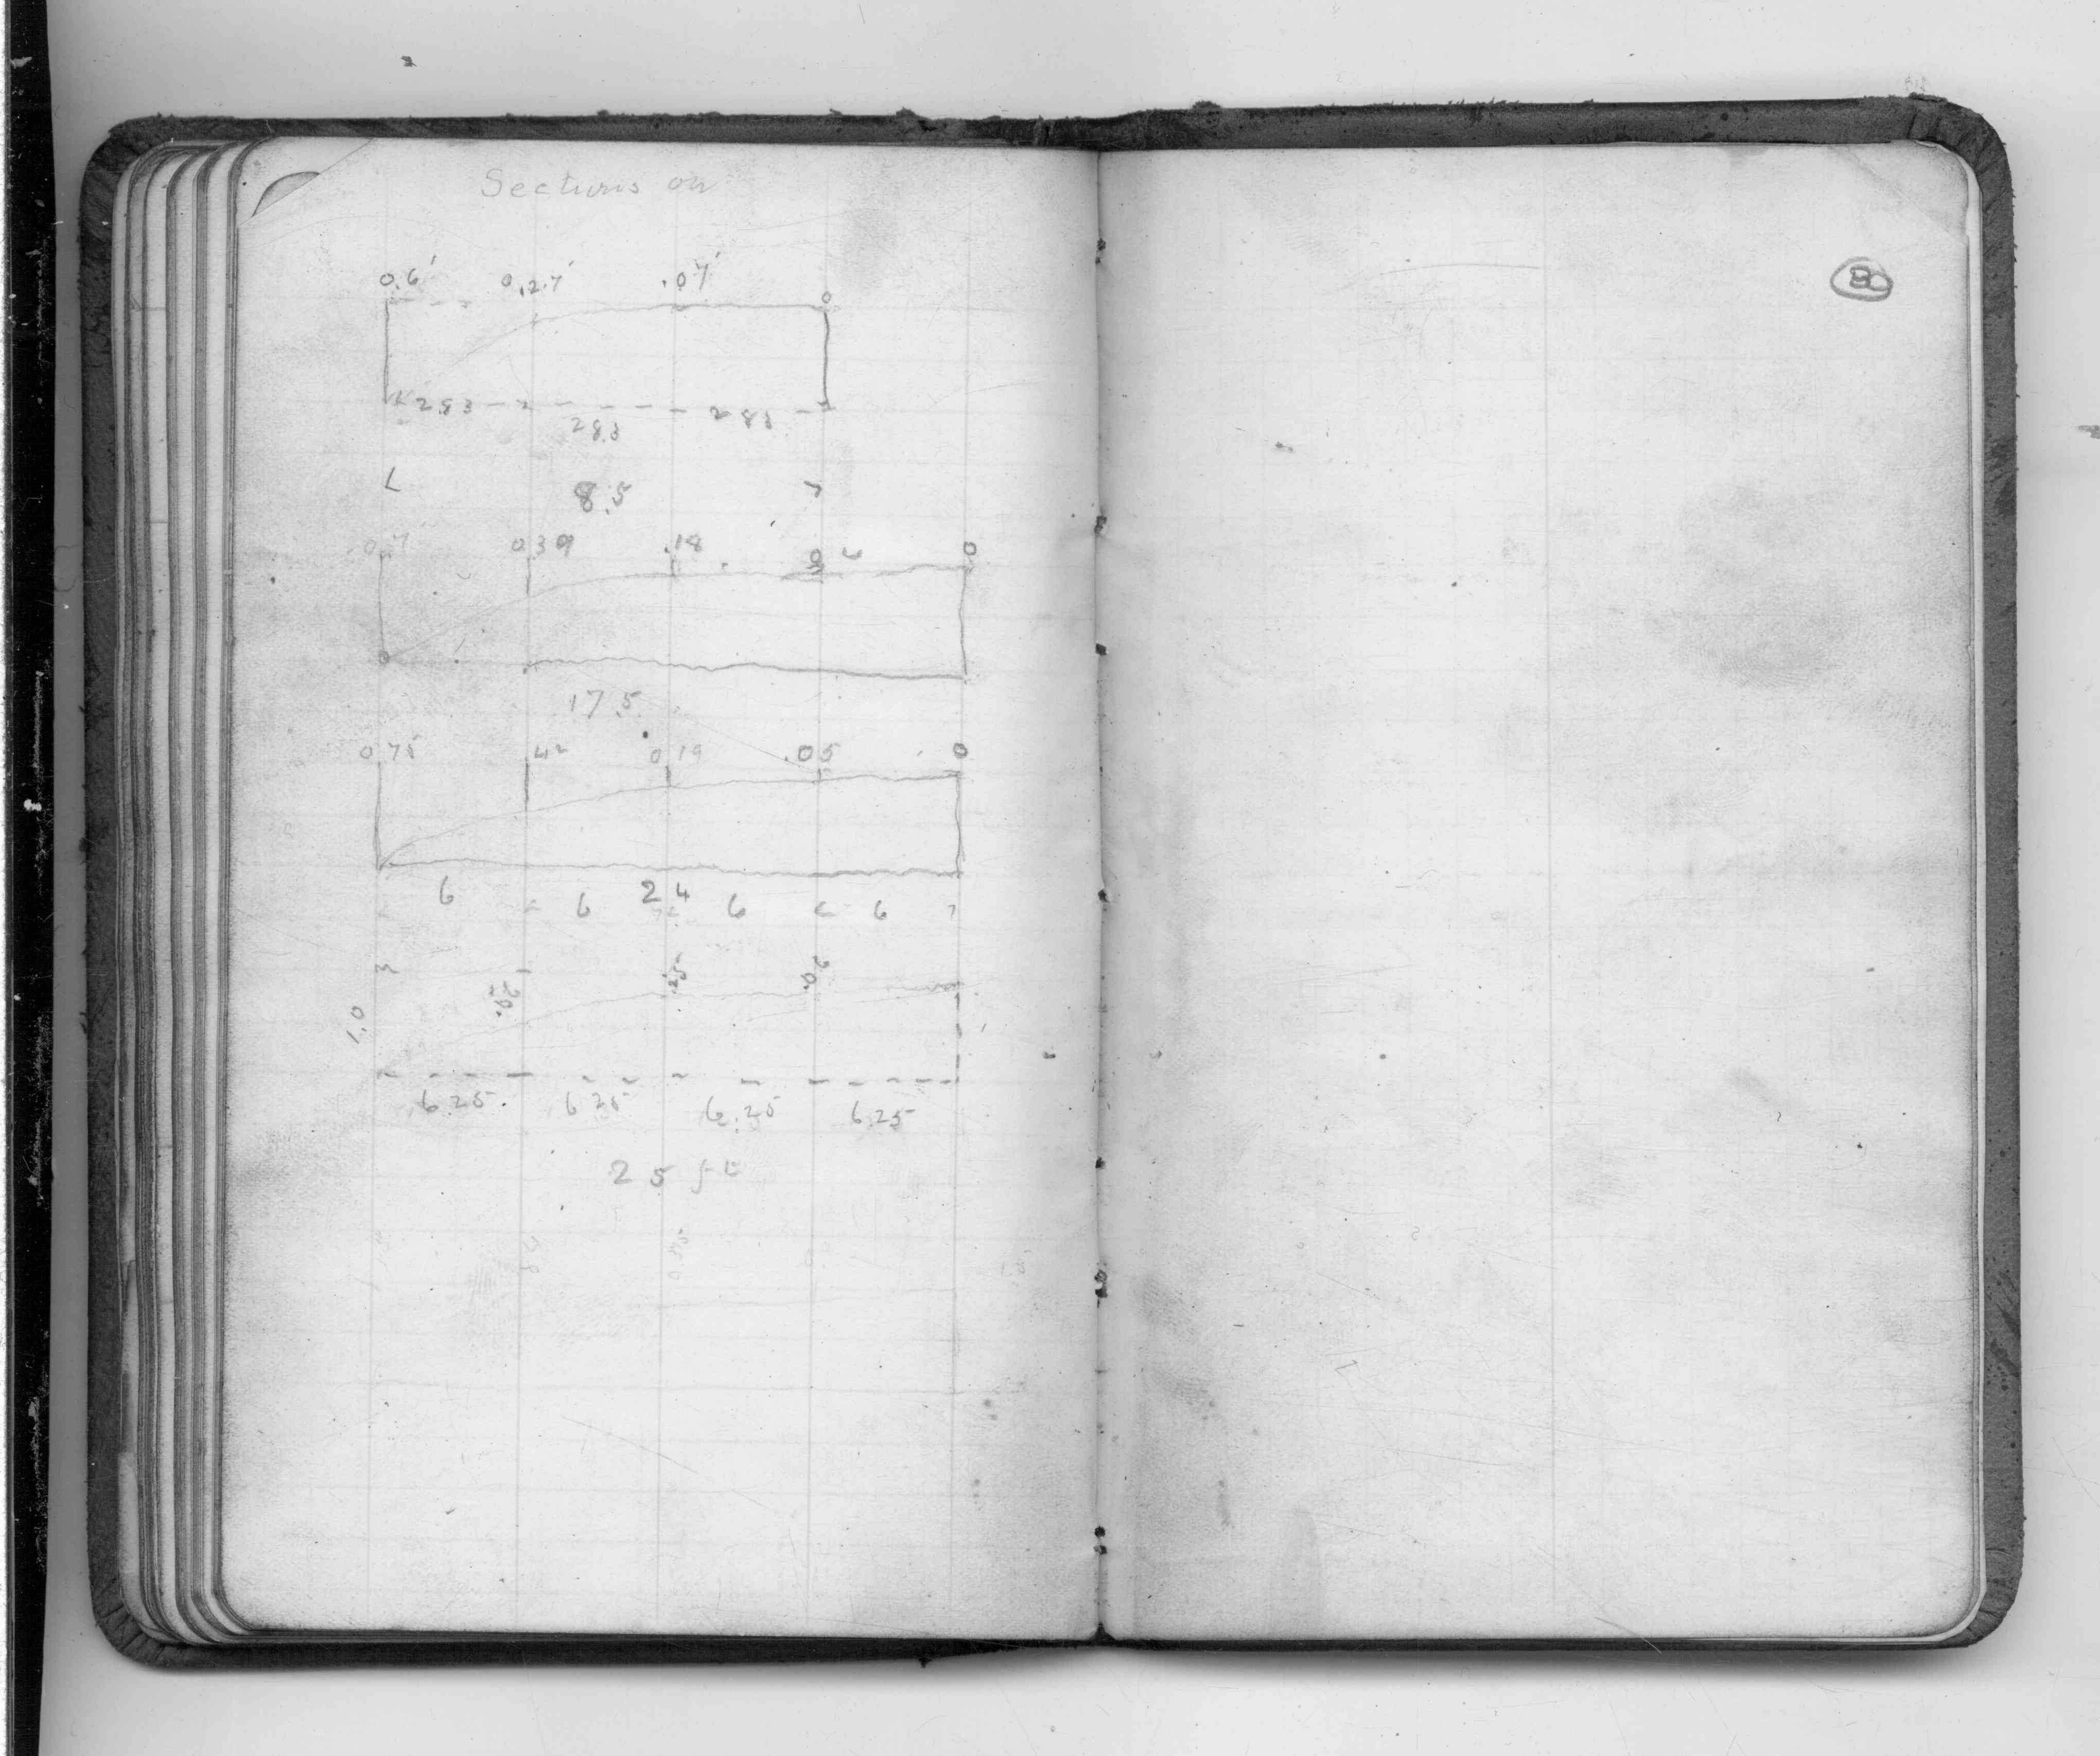 Sections on
0.6' 0.27' .07' 0
2.83 2.83 2.83
8.5
0.7 0.39 .18 0
17.5
0.75 .42 0.19 .05 0
6 6 24 6 6
1.0 .25
6.25 6.25 6.25 6.25
25 ft